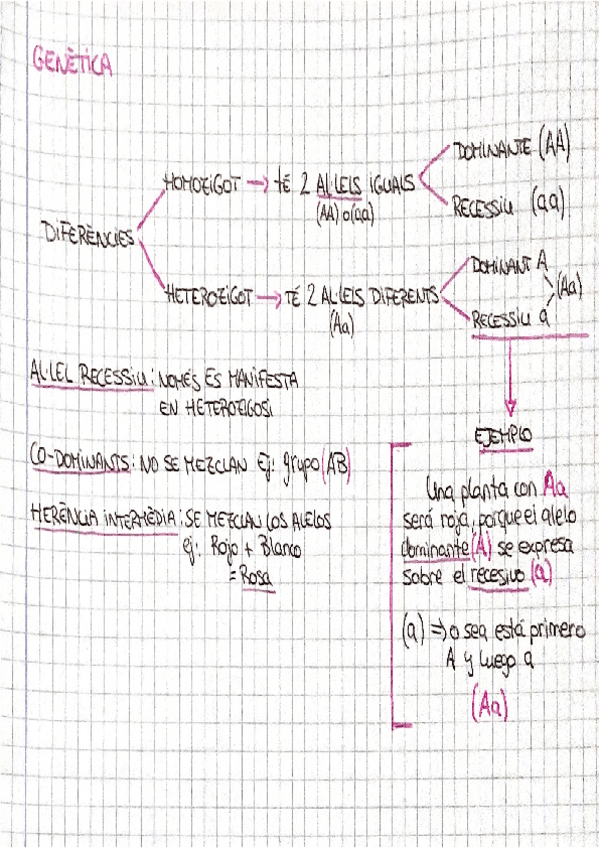 GENÈTICA
DIFERÈNCIES
HOMOZIGOT → TÉ 2 AL·LELS IGUALS
(AA) o (aa)
DOMINANTE (AA)
RECESSIU (aa)
HETEROZIGOT → TÉ 2 AL·LELS DIFERENTS
(Aa)
DOMINANT A
(Aa)
RECESSIU a
AL·LEL RECESSIU: NOMÉS ES MANIFESTA
EN HETEROZIGOSI
CO-DOMINANTS: NO SE MEZCLAN Ej: grupo (AB)
HERÈNCIA INTERMÈDIA: SE MEZCLAN LOS ALELOS
ej: Rojo + Blanco
= Rosa
EJEMPLO
Una planta con Aa
será roja, porque el alelo
dominante (A) se expresa
sobre el recesivo (a)
(a) ⇒ o sea está primero
A y luego a
(Aa)